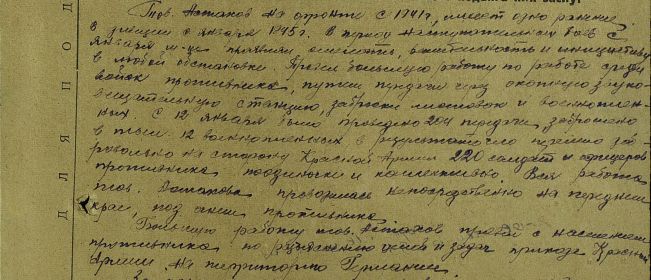 Тов. Астахов на фронте с 1941 г., имеет одно ранение.
В дивизии с января 1945 г. В период наступательных боев с
января м-ца проявил смелость, решительность и инициативу
в любой обстановке. Провел большую работу по работе среди
войск противника, путем передачи через окопную звуко-
вещательную станцию, заброски листовок и военноплен-
ных. С 12 января было проведено 204 передачи, заброшено
в тыл 12 военнопленных в результате чего перешло доб-
ровольно на сторону Красной Армии 220 солдат и офицеров
противника поодиночке и коллективно. Вся работа
тов. Астахова проводилась непосредственно на переднем
крае, под огнем противника
Большую работу тов. Астахов провел с населением
противника по разъяснению целей и задач прихода Красной
Армии на территорию Германии.
ДЛЯ ПОД